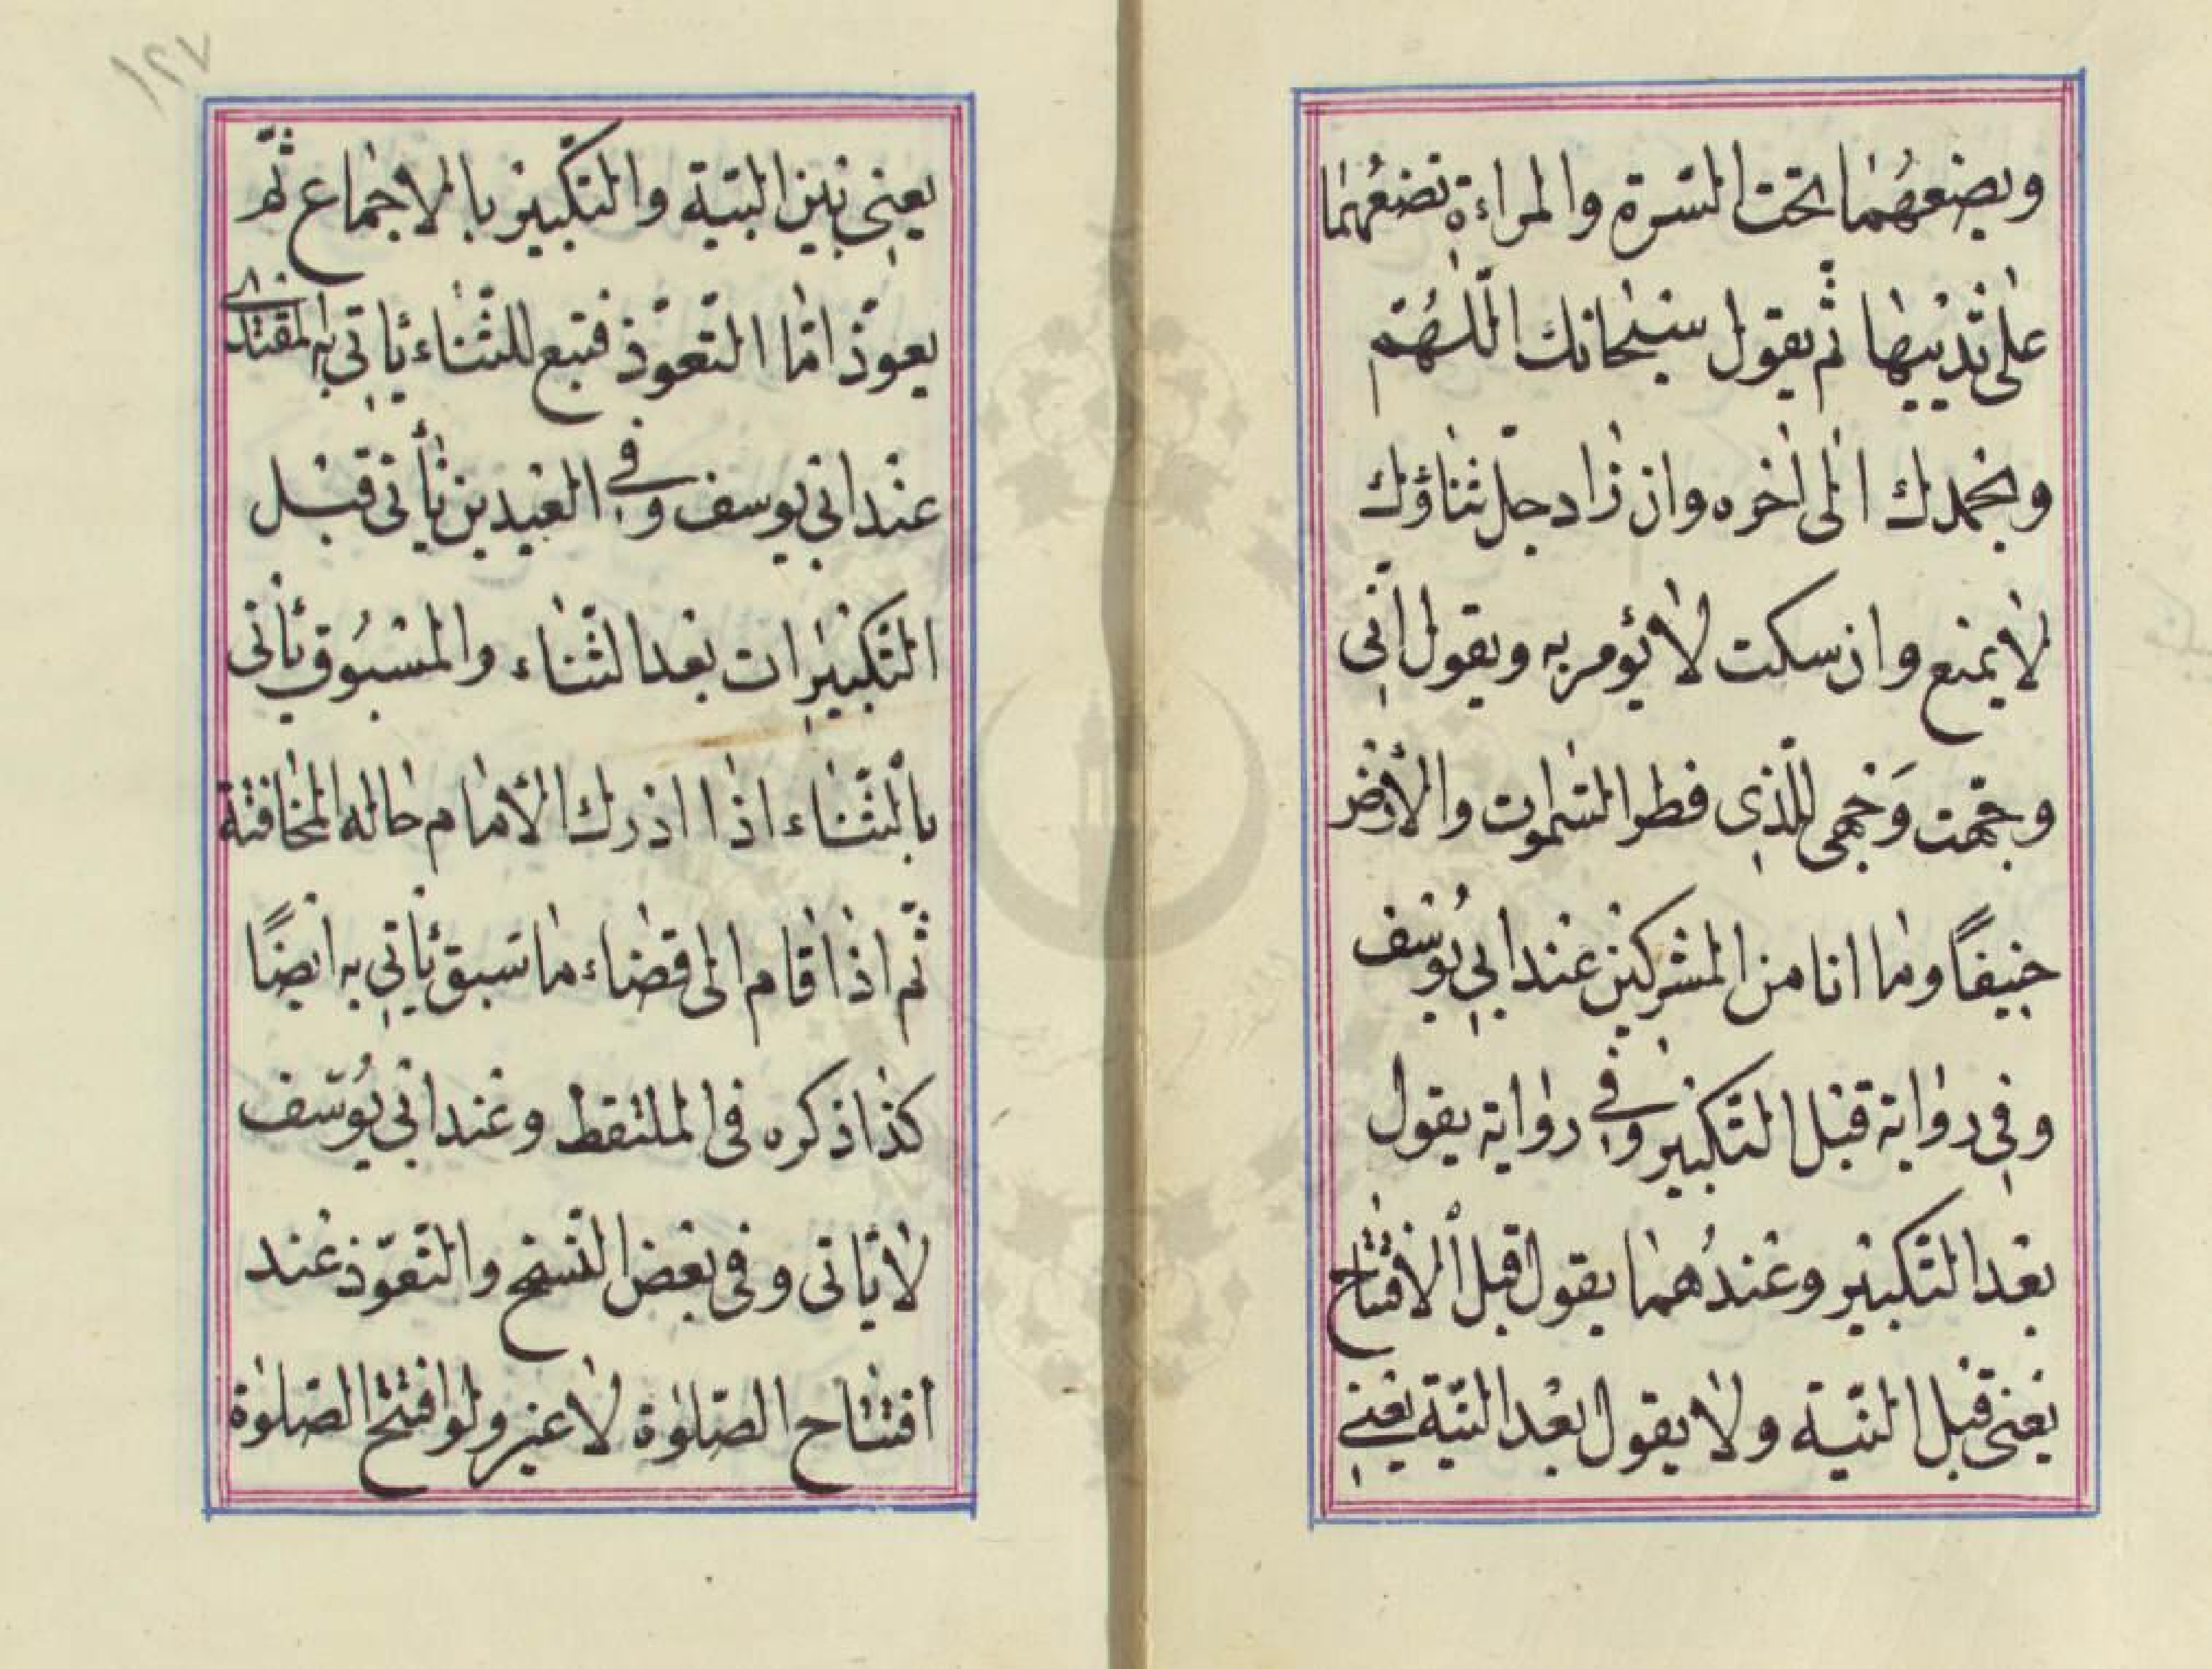 ويضعهما تحت السرة والمراءة تضعهما
على ثدييها ثم يقول سبحانك اللهم
وبحمدك الى اخره وان زاد جل ثناؤك
لا يمنع وان سكت لا يؤمر به ويقول انى
وجهت وجهى للذى فطر السموات والأرض
حنيفا وما انا من المشركين عند ابى يوسف
وفى رواية قبل التكبير وفى رواية يقول
بعد التكبير وعندهما يقول قبل الافتتاح
يعنى قبل النية ولا يقول بعد النية يعنى
١٢٧
يعنى بين النية والتكبير بالاجماع ثم
يعوذ اما التعوذ فتبع للثناء ياتى به المقتدى
عند ابى يوسف وفى العيدين يأتى قبل
التكبيرات بعد الثناء والمسبوق يأتى
بالثناء اذا ادرك الأمام حاله المخافتة
ثم اذا قام الى قضاء ما سبق ياتى به ايضا
كذا ذكره فى الملتقط وعند ابى يوسف
لا ياتى وفى بعض النسخ والتعوذ عند
افتتاح الصلوة لا غير ولو افتتح الصلوة